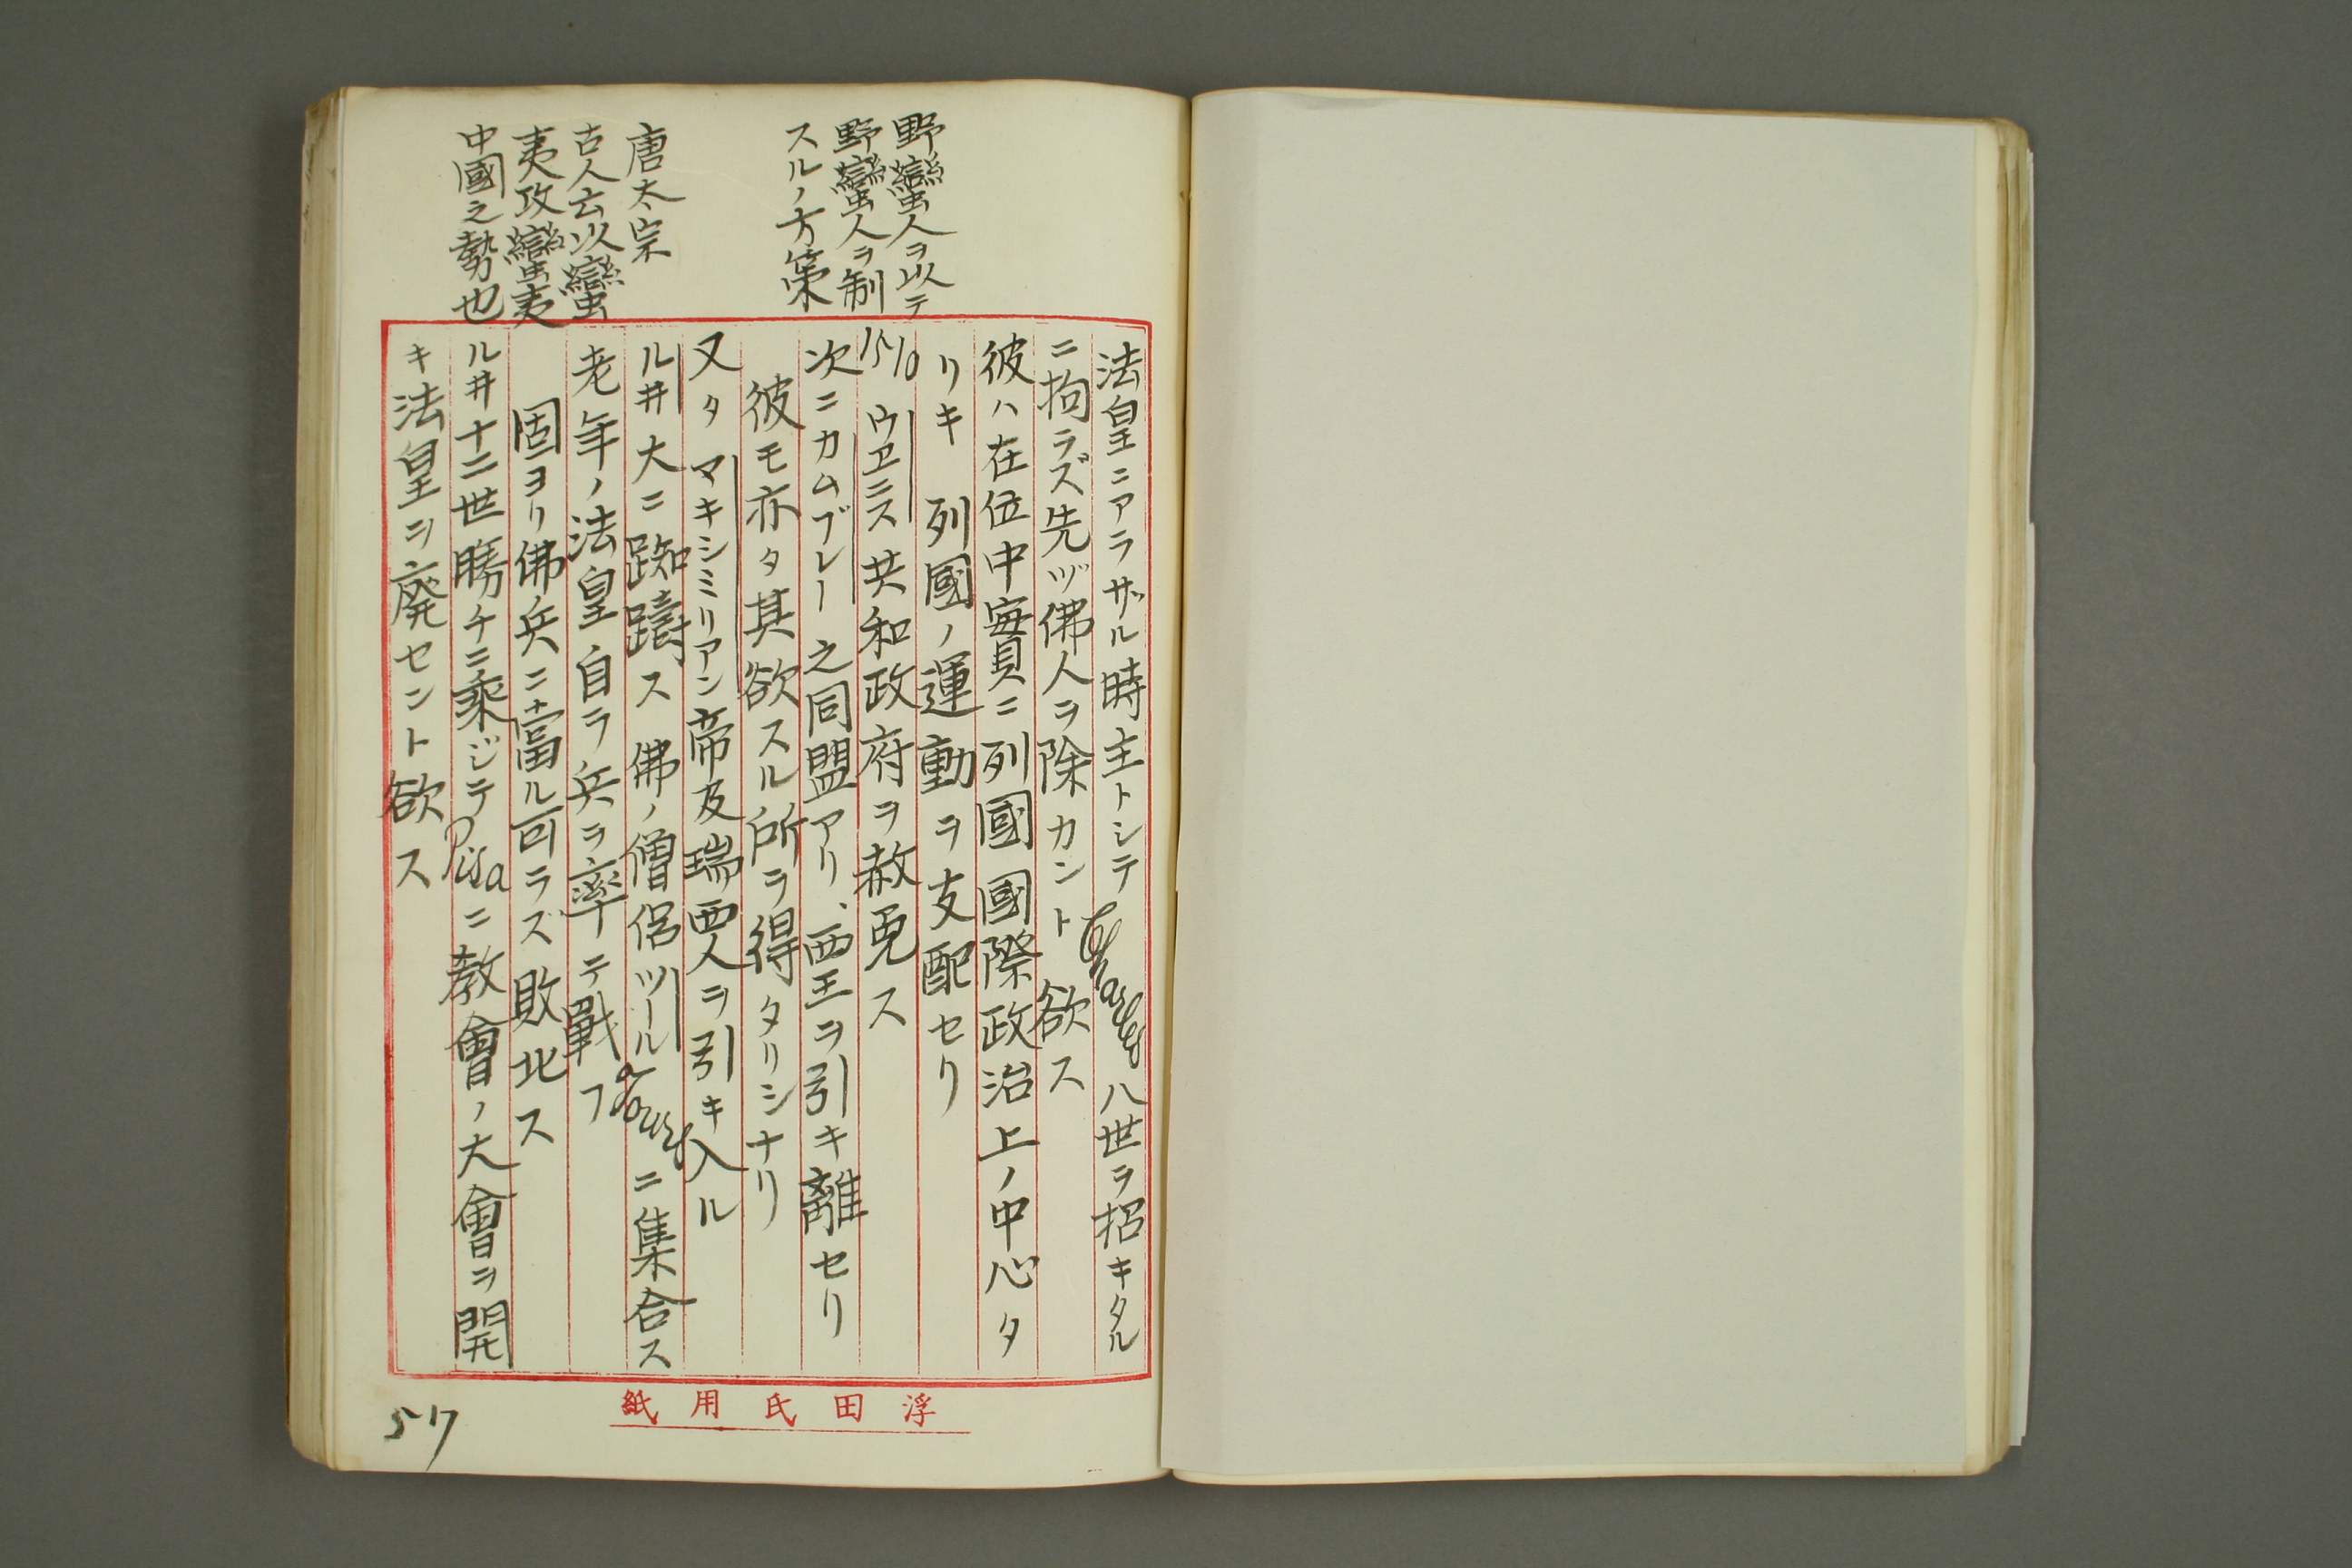 野蠻人ヲ以テ
野蠻人ヲ制
スルノ方策
唐太宗
古人云以蠻
夷攻蠻夷
中國之勢也
法皇ニアラザル時主トシテ Charles 八世ヲ招キタル
ニ拘ラズ先ヅ佛人ヲ除カント欲ス
彼ハ在位中實ニ列國國際政治上ノ中心タ
リキ 列國ノ運動ヲ支配セリ
1510 ウヱニス共和政府ヲ赦免ス
次ニカムブレー之同盟アリ、西王ヲ引キ離セリ
彼モ亦タ其欲スル所ヲ得タリシナリ
又タマキシミリアン帝及瑞西人ヲ引キ入ル
ル井大ニ踟躊ス 佛ノ僧侶ツール ニ集合ス
老年ノ法皇自ラ兵ヲ率テ戰フ
固ヨリ佛兵ニ當ル可ラズ敗北ス
ル井十二世勝チニ乘ジテ Pisa ニ教會ノ大會ヲ開
キ法皇ヲ廃セント欲ス
浮田氏用紙
57